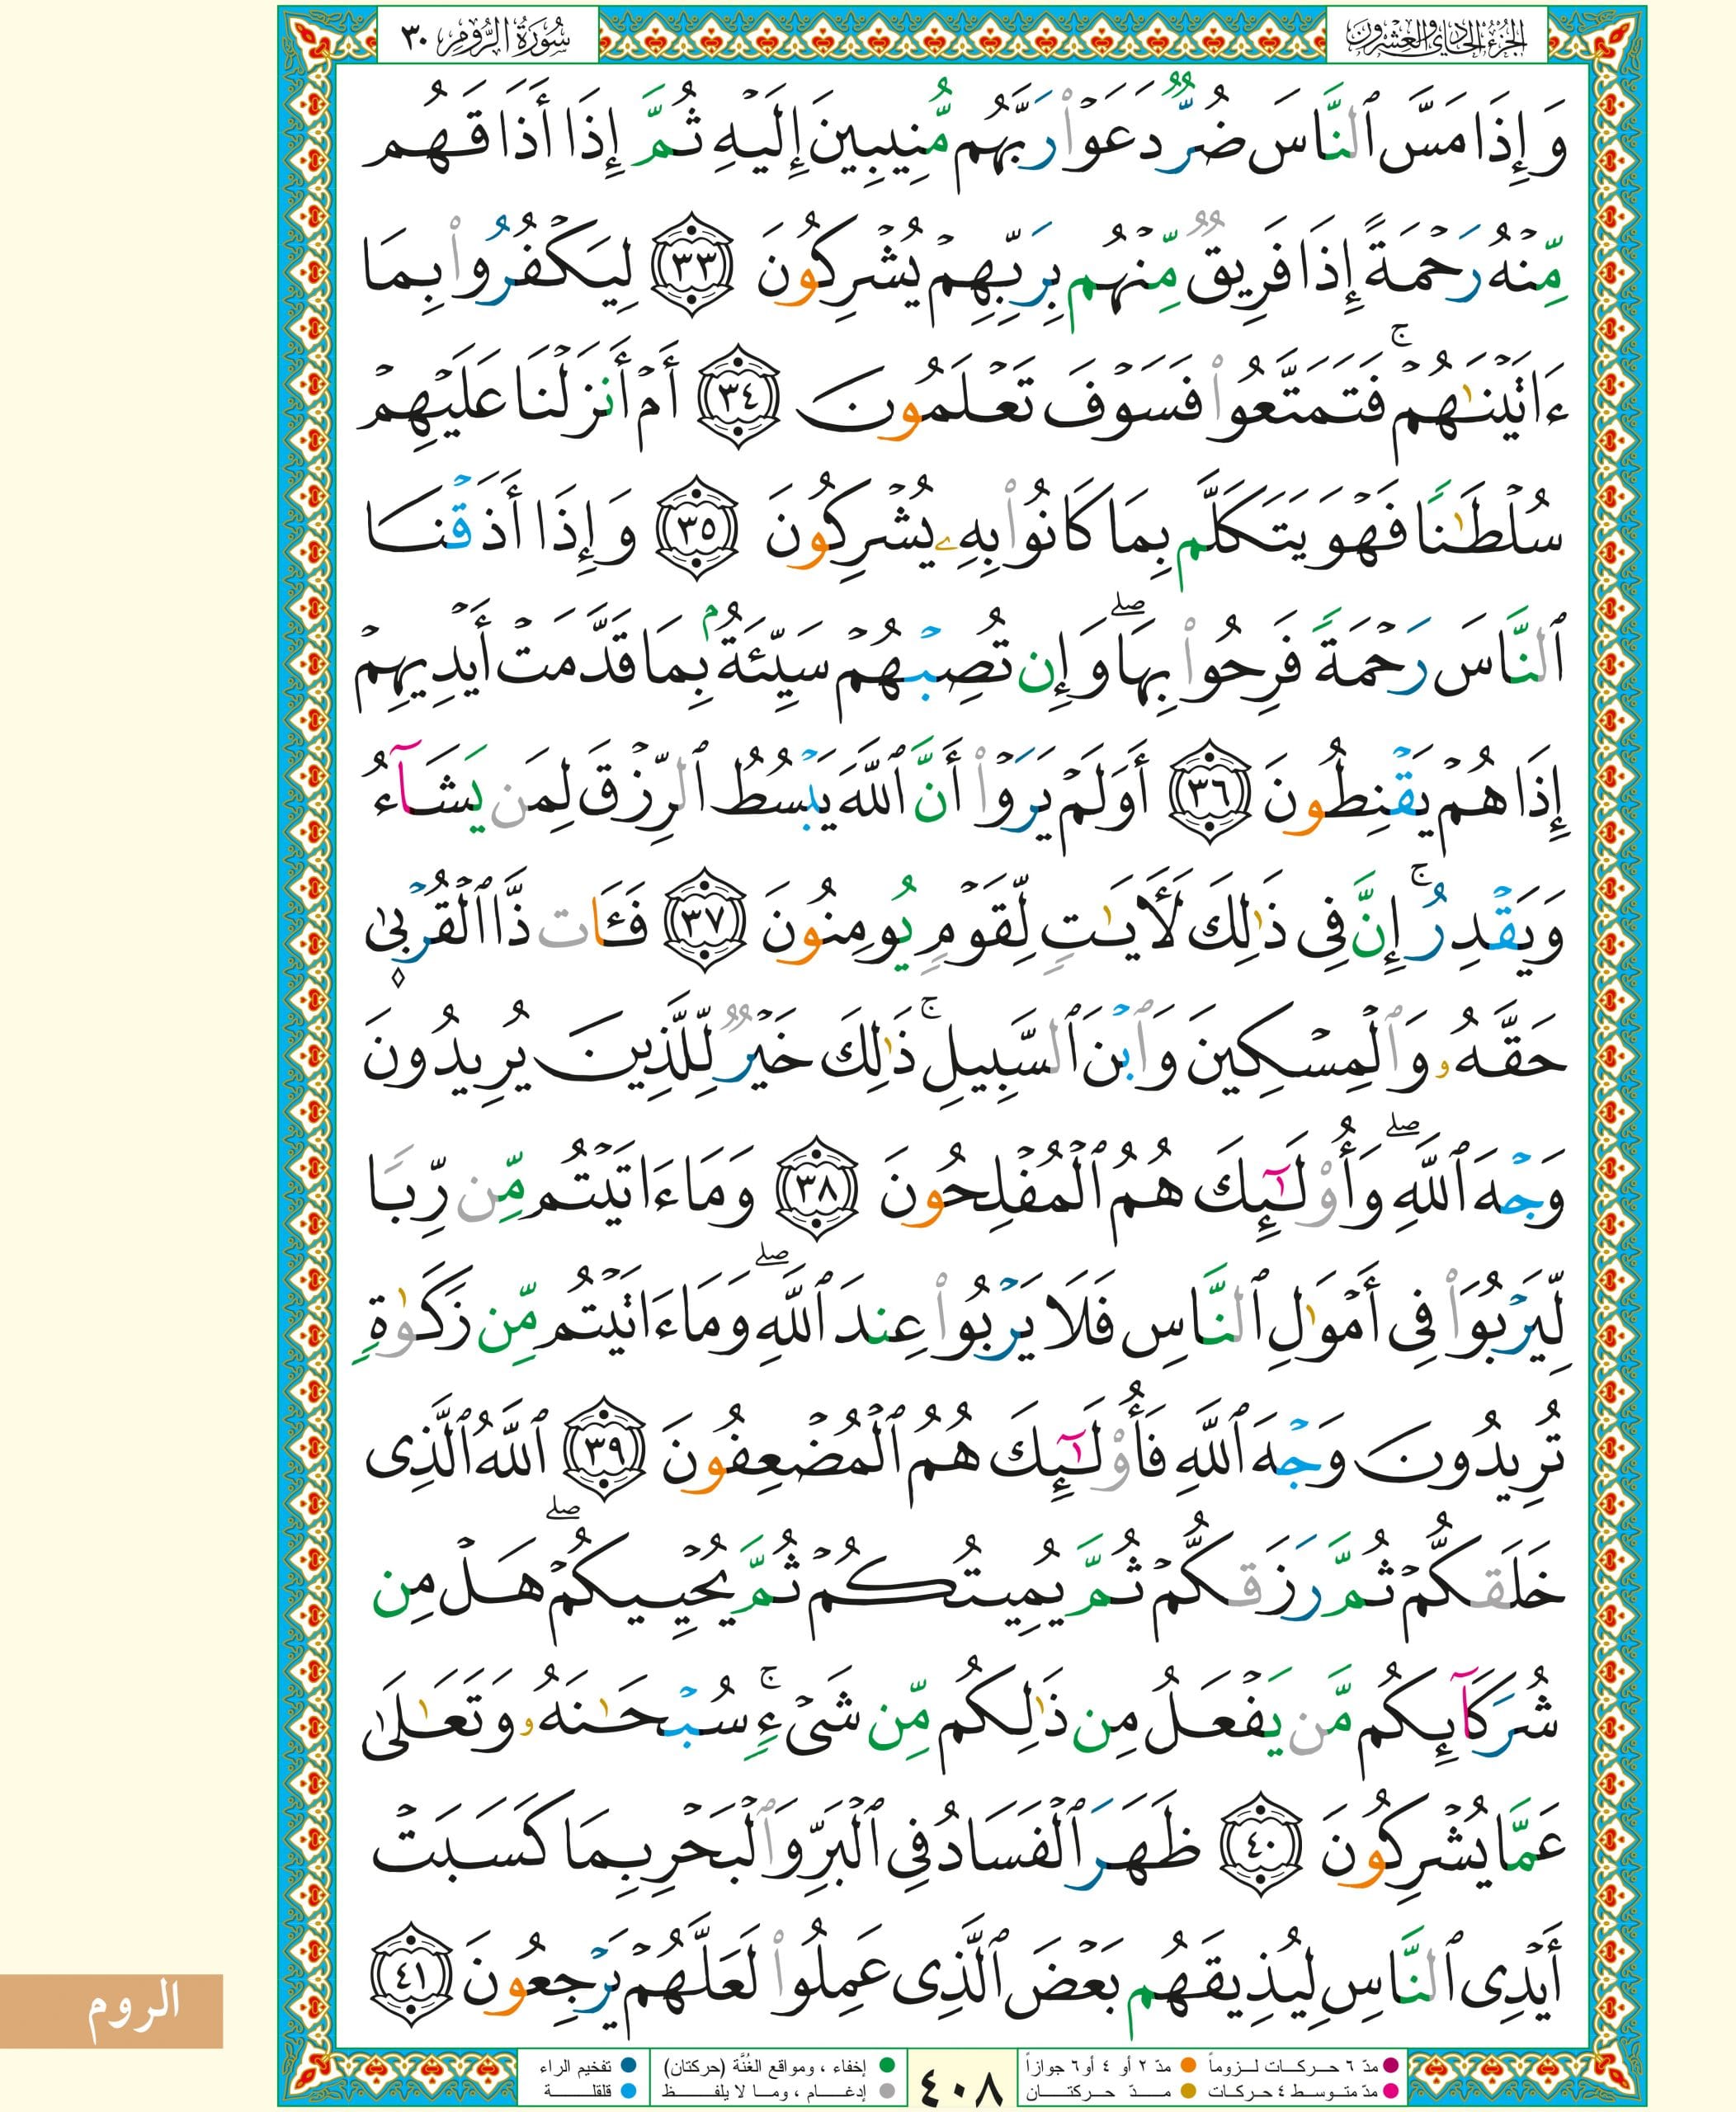 الجزء الحادي والعشرون
سورة الروم ٣٠
وَإِذَا مَسَّ ٱلنَّاسَ ضُرٌّ دَعَوْا۟ رَبَّهُم مُّنِيبِينَ إِلَيْهِ ثُمَّ إِذَا أَذَاقَهُم
مِّنْهُ رَحْمَةً إِذَا فَرِيقٌ مِّنْهُم بِرَبِّهِمْ يُشْرِكُونَ ٣٣ لِيَكْفُرُوا۟ بِمَا
ءَاتَيْنَٰهُمْ ۚ فَتَمَتَّعُوا۟ فَسَوْفَ تَعْلَمُونَ ٣٤ أَمْ أَنزَلْنَا عَلَيْهِمْ
سُلْطَٰنًا فَهُوَ يَتَكَلَّمُ بِمَا كَانُوا۟ بِهِۦ يُشْرِكُونَ ٣٥ وَإِذَا أَذَقْنَا
ٱلنَّاسَ رَحْمَةً فَرِحُوا۟ بِهَا ۖ وَإِن تُصِبْهُمْ سَيِّئَةٌۢ بِمَا قَدَّمَتْ أَيْدِيهِمْ
إِذَا هُمْ يَقْنَطُونَ ٣٦ أَوَلَمْ يَرَوْا۟ أَنَّ ٱللَّهَ يَبْسُطُ ٱلرِّزْقَ لِمَن يَشَآءُ
وَيَقْدِرُ ۚ إِنَّ فِى ذَٰلِكَ لَءَايَٰتٍ لِّقَوْمٍ يُومِنُونَ ٣٧ فَـَٔاتِ ذَا ٱلْقُرْبَىٰ
حَقَّهُۥ وَٱلْمِسْكِينَ وَٱبْنَ ٱلسَّبِيلِ ۚ ذَٰلِكَ خَيْرٌ لِّلَّذِينَ يُرِيدُونَ
وَجْهَ ٱللَّهِ ۖ وَأُو۟لَٰٓئِكَ هُمُ ٱلْمُفْلِحُونَ ٣٨ وَمَا ءَاتَيْتُم مِّن رِّبًا
لِّيَرْبُوَا۟ فِى أَمْوَٰلِ ٱلنَّاسِ فَلَا يَرْبُوا۟ عِندَ ٱللَّهِ ۖ وَمَا ءَاتَيْتُم مِّن زَكَوٰةٍ
تُرِيدُونَ وَجْهَ ٱللَّهِ فَأُو۟لَٰٓئِكَ هُمُ ٱلْمُضْعِفُونَ ٣٩ ٱللَّهُ ٱلَّذِى
خَلَقكُّمْ ثُمَّ رَزَقكُّمْ ثُمَّ يُمِيتُكُمْ ثُمَّ يُحْيِيكُمْ ۖ هَلْ مِن
شُرَكَآئِكُم مَّن يَفْعَلُ مِن ذَٰلِكُم مِّن شَىْءٍ ۚ سُبْحَٰنَهُۥ وَتَعَٰلَىٰ
عَمَّا يُشْرِكُونَ ٤٠ ظَهَرَ ٱلْفَسَادُ فِى ٱلْبَرِّ وَٱلْبَحْرِ بِمَا كَسَبَتْ
أَيْدِى ٱلنَّاسِ لِيُذِيقَهُم بَعْضَ ٱلَّذِى عَمِلُوا۟ لَعَلَّهُمْ يَرْجِعُونَ ٤١
الروم
مدّ ٦ حركات لزوماً مدّ ٢ أو ٤ أو ٦ جوازاً
مدّ متوسط ٤ حركات مدّ حركتان
٤٠٨
إخفاء ، ومواقع الغُنَّة (حركتان) تفخيم الراء
إدغام ، وما لا يلفظ قلقلة